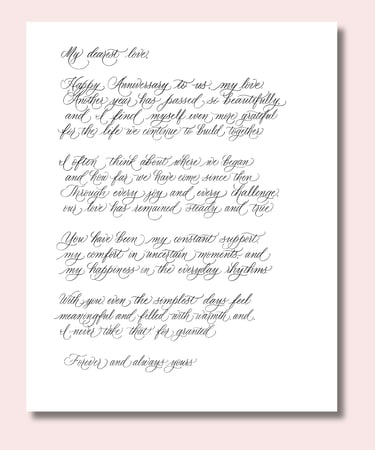 My dearest love,
Happy Anniversary to us, my love.
Another year has passed so beautifully,
and I find myself even more grateful
for the life we continue to build together.
I often think about where we began
and how far we have come since then.
Through every joy and every challenge,
our love has remained steady and true.
You have been my constant support,
my comfort in uncertain moments, and
my happiness in the everyday rhythms.
With you even the simplest days feel
meaningful and filled with warmth, and
I never take that for granted.
Forever and always yours